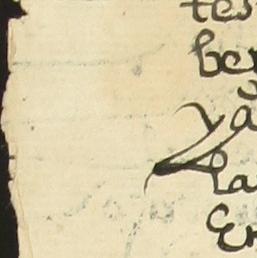 tes
ber
ya
la
En